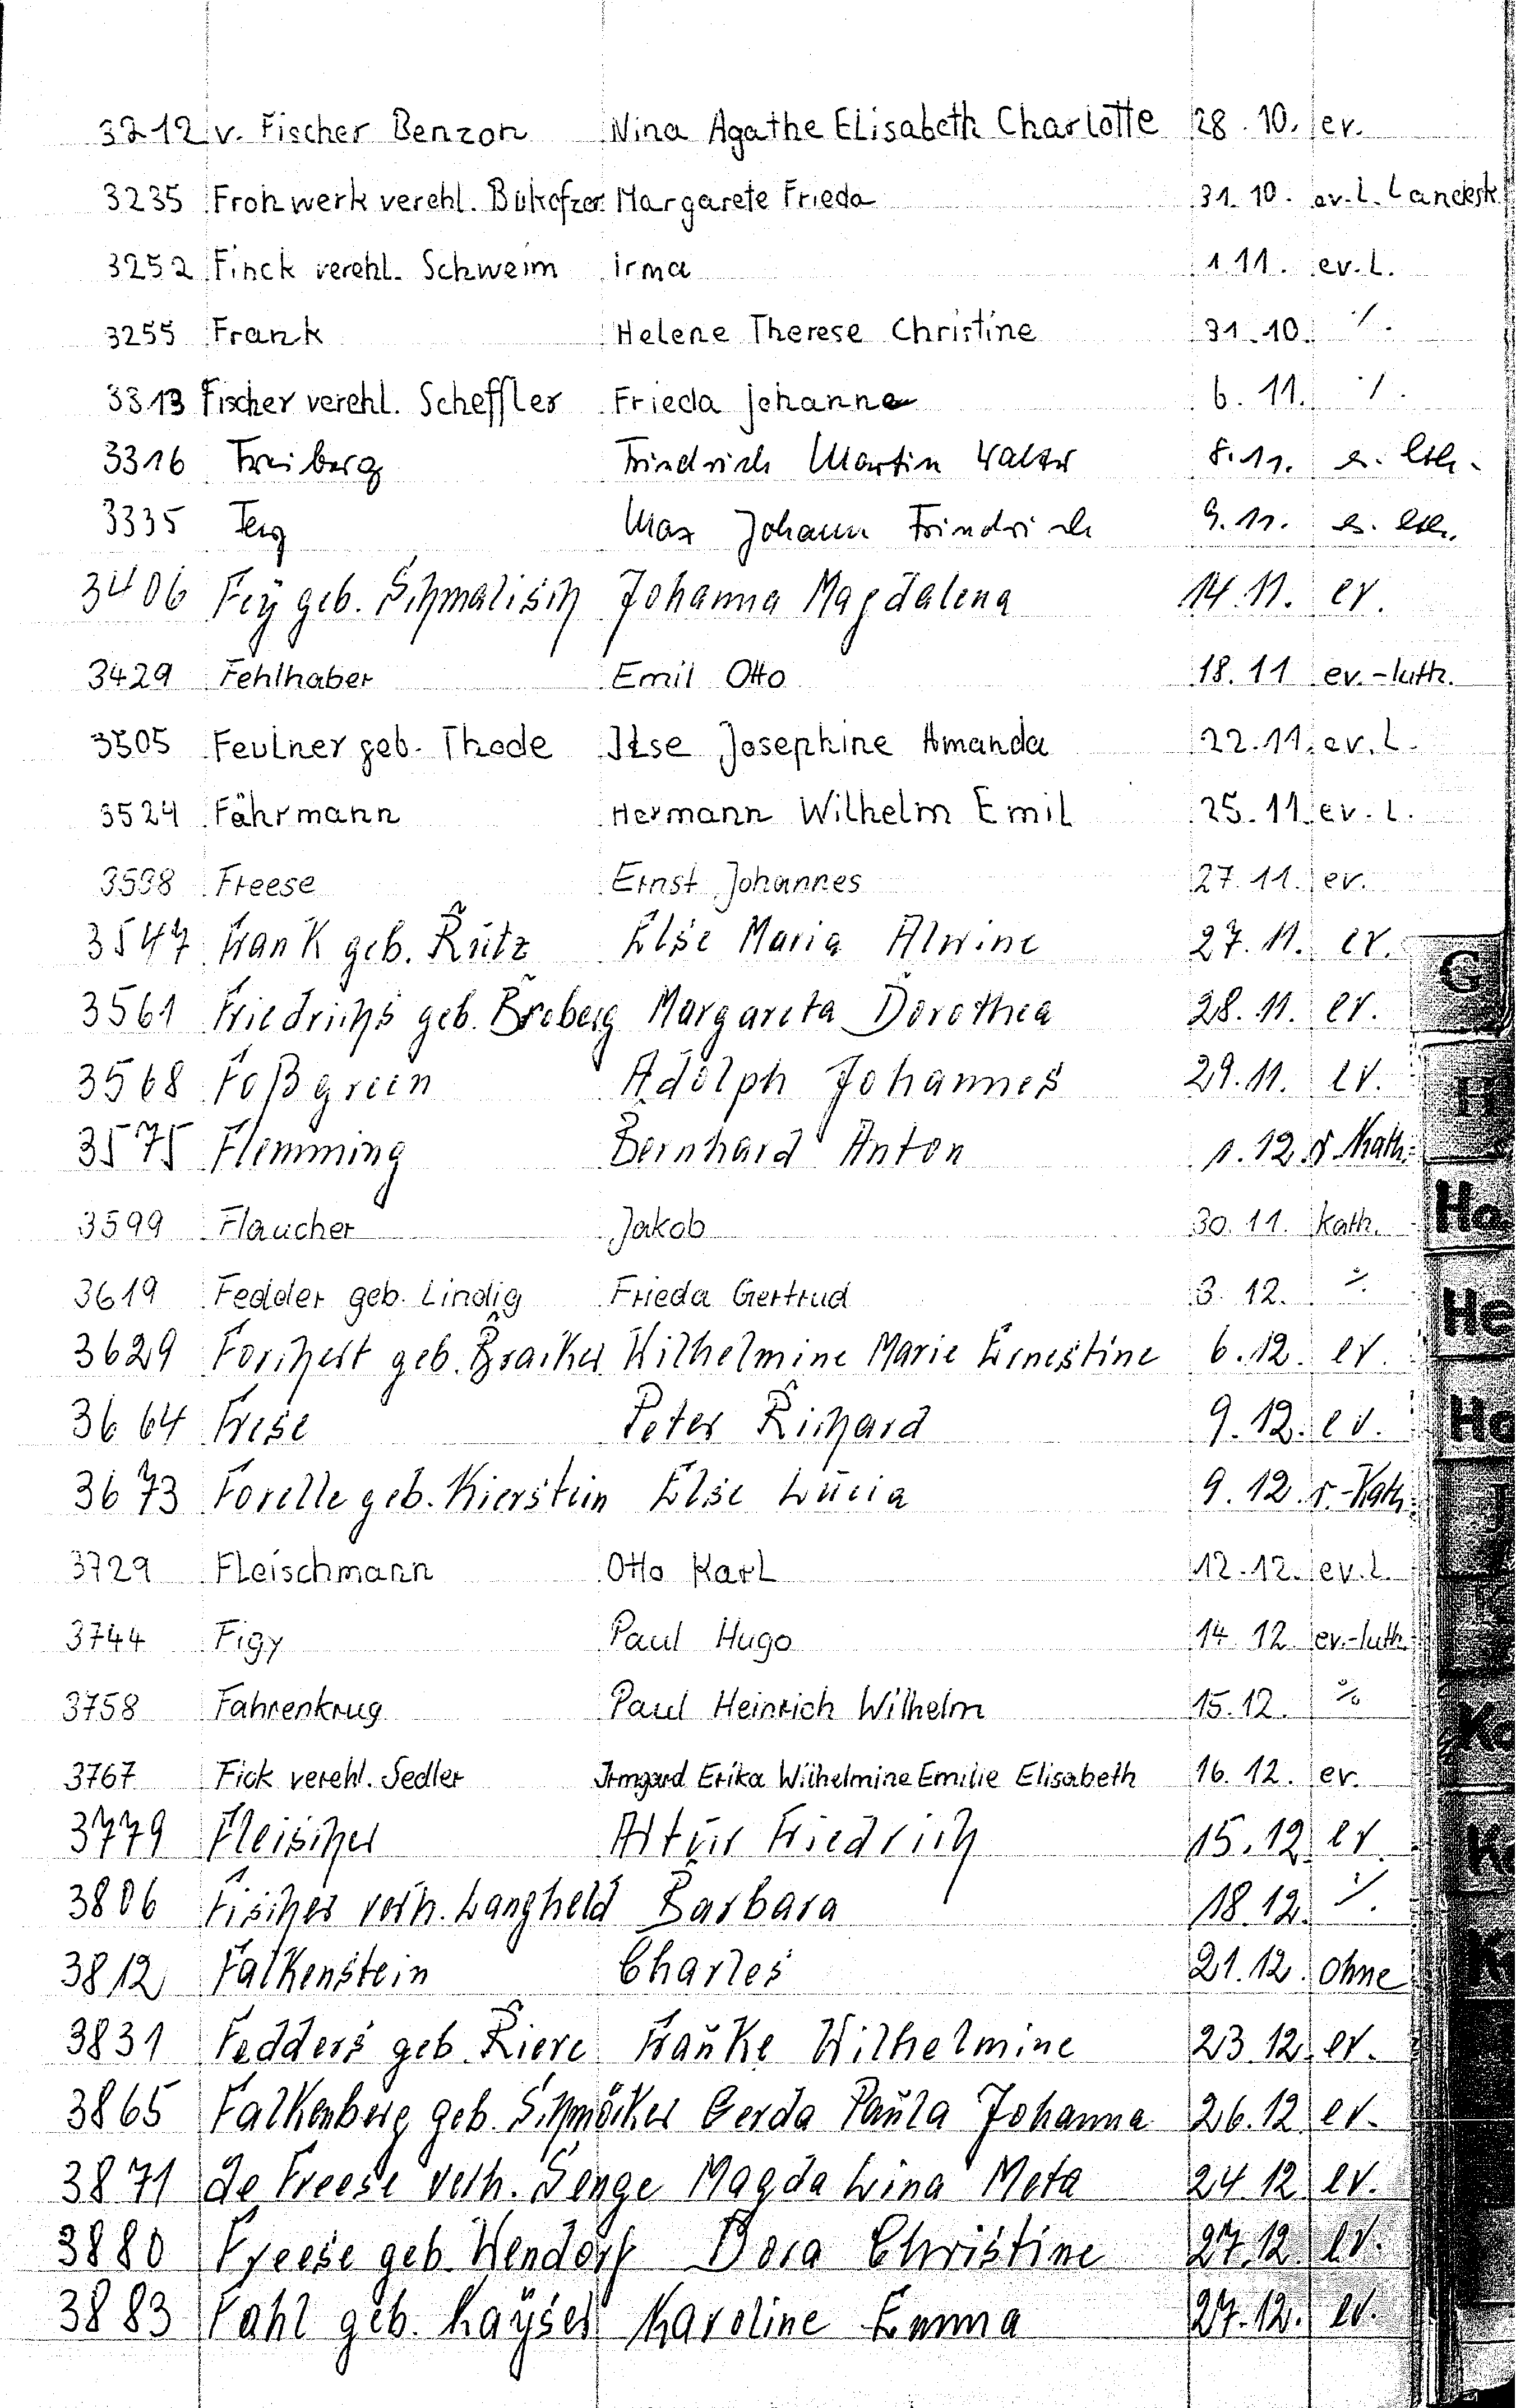 3212 v. Fischer Benzon Nina Agathe Elisabeth Charlotte 28. 10. ev.
3235 Frohwerk verehl. Bukofzer Margarete Frieda 31. 10. ev. L. Landesk
3252 Finck verehl. Schweim Irma 1. 11. ev. L.
3255 Frank Helene Therese Christine 31. 10. ·/.
3313 Fischer verehl. Scheffler Frieda Johanne 6. 11. ·/.
3316 Freiberg Friedrich Martin Walter 8. 11. ev. lth.
3335 Max Johann Friedrich 9. 11. ev. lth.
3406 Fey geb. Schmalisch Johanna Magdalena 14. 11. ev.
3429 Fehlhaber Emil Otto 18. 11 ev.-luth.
3505 Feulner geb. Thode Ilse Josephine Amanda 22. 11. ev. L.
3524 Fährmann Hermann Wilhelm Emil 25. 11. ev. L.
3538 Freese Ernst Johannes 27. 11. ev.
3547 Frank geb. Rütz Else Maria Alwine 27. 11. ev.
3561 Friedrichs geb. Broberg Margareta Dorothea 28. 11. ev.
3568 Foßgreen Adolph Johannes 29. 11. ev.
3575 Flemming Bernhard Anton 1. 12 r. Kath.
3599 Flaucher Jakob 30. 11. kath.
3619 Fedder geb. Lindig Frieda Gertrud 3. 12. ·/.
3629 Forchert geb. Bracker Wilhelmine Marie Ernestine 6. 12. ev.
3664 Frese Peter Richard 9. 12. ev.
3673 Forelle geb. Kierstein Else Lucia 9. 12. r.-Kath.
3729 Fleischmann Otto Karl 12. 12. ev. L.
3744 Figy Paul Hugo 14. 12 ev.-luth.
3758 Fahrenkrug Paul Heinrich Wilhelm 15. 12. ·/.
3767 Fick verehl. Sedler Irmgard Erika Wilhelmine Emilie Elisabeth 16. 12. ev.
3779 Fleischer Artur Friedrich 15. 12 ev.
3806 Fischer verh. Langheld Barbara 18. 12. ·/.
3812 Falkenstein Charles 21. 12. ohne
3831 Fedders geb. Riere Frauke Wilhelmine 23. 12. ev.
3865 Falkenberg geb. Schmöcker Gerda Paula Johanna 26. 12 ev.
3871 de Freese verh. Senge Magda Lina Meta 24. 12 ev.
3880 Freese geb. Wendorf Dora Christine 27. 12. ev.
3883 Fahl geb. Kayser Karoline Emma 27. 12. ev.
G
H
Ha
He
Ho
J
Ka